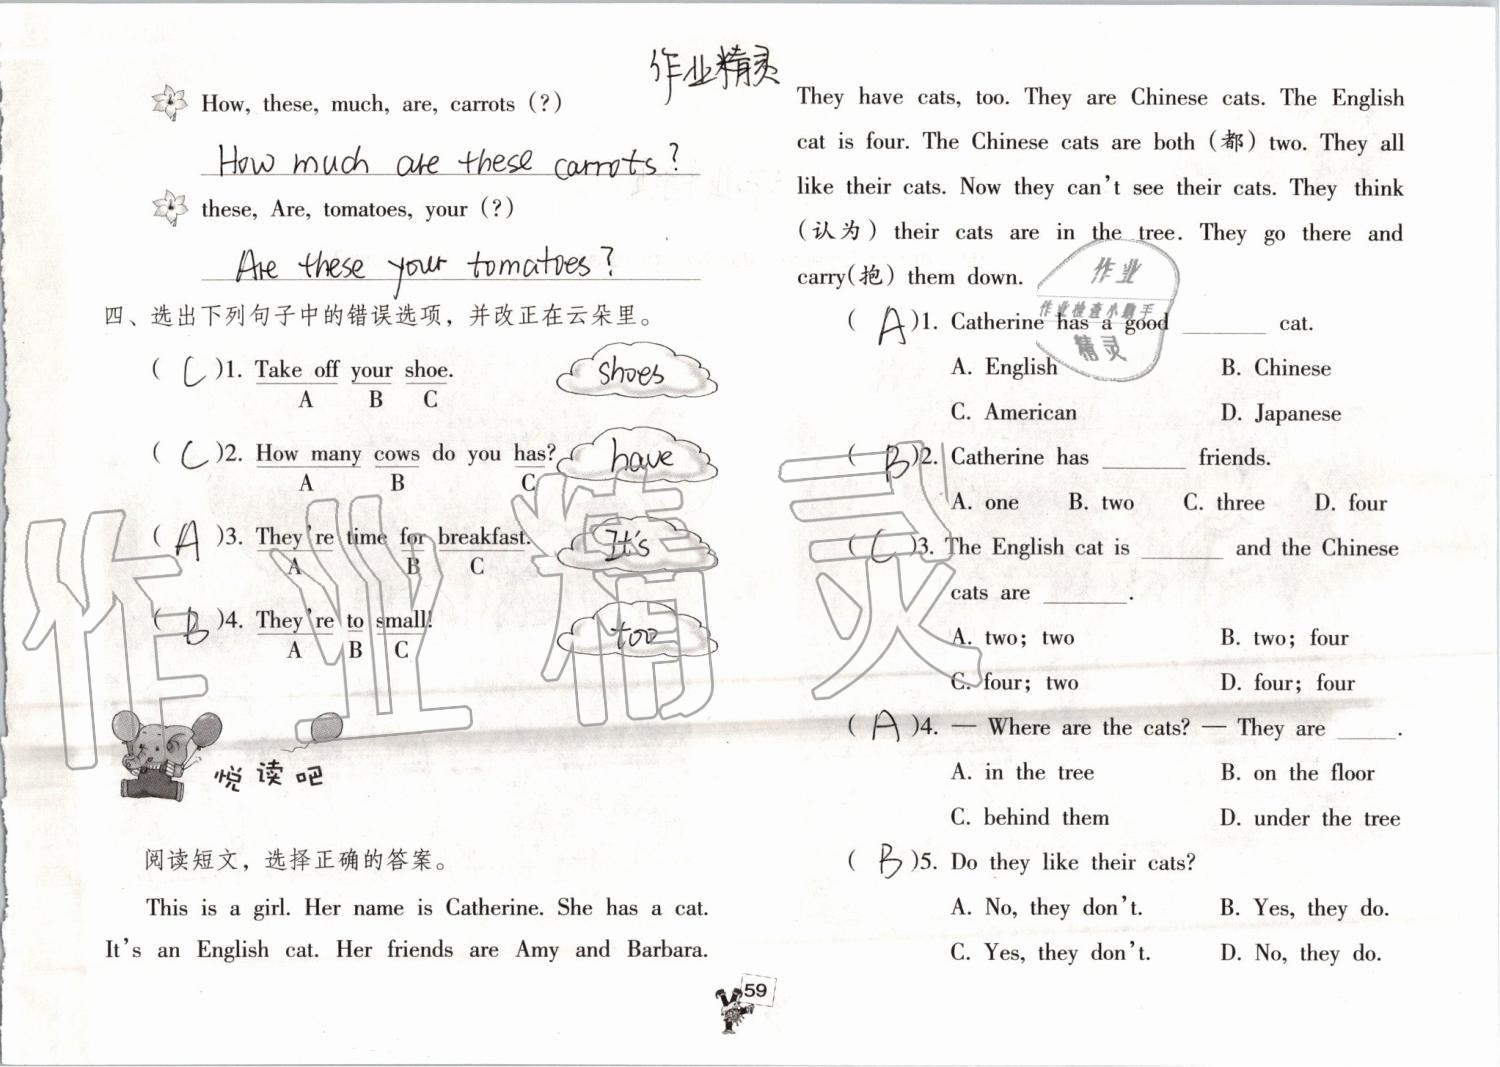 作业精灵
How, these, much, are, carrots (?)
How much are these carrots?
these, Are, tomatoes, your (?)
Are these your tomatoes?
四、选出下列句子中的错误选项，并改正在云朵里。
( C )1. Take off your shoe. shoes
A B C
( C )2. How many cows do you has? have
A B C
( A )3. They're time for breakfast. It's
A B C
( B )4. They're to small! too
A B C
悦读吧
阅读短文，选择正确的答案。
This is a girl. Her name is Catherine. She has a cat.
It's an English cat. Her friends are Amy and Barbara.
They have cats, too. They are Chinese cats. The English
cat is four. The Chinese cats are both (都) two. They all
like their cats. Now they can't see their cats. They think
(认为) their cats are in the tree. They go there and
carry(抱) them down.
( A )1. Catherine has a good ______ cat.
A. English B. Chinese
C. American D. Japanese
( B )2. Catherine has ______ friends.
A. one B. two C. three D. four
( C )3. The English cat is ______ and the Chinese
cats are ______.
A. two; two B. two; four
C. four; two D. four; four
( A )4. — Where are the cats? — They are ______.
A. in the tree B. on the floor
C. behind them D. under the tree
( B )5. Do they like their cats?
A. No, they don't. B. Yes, they do.
C. Yes, they don't. D. No, they do.
59
作业
作业检查小帮手
精灵
作业精灵